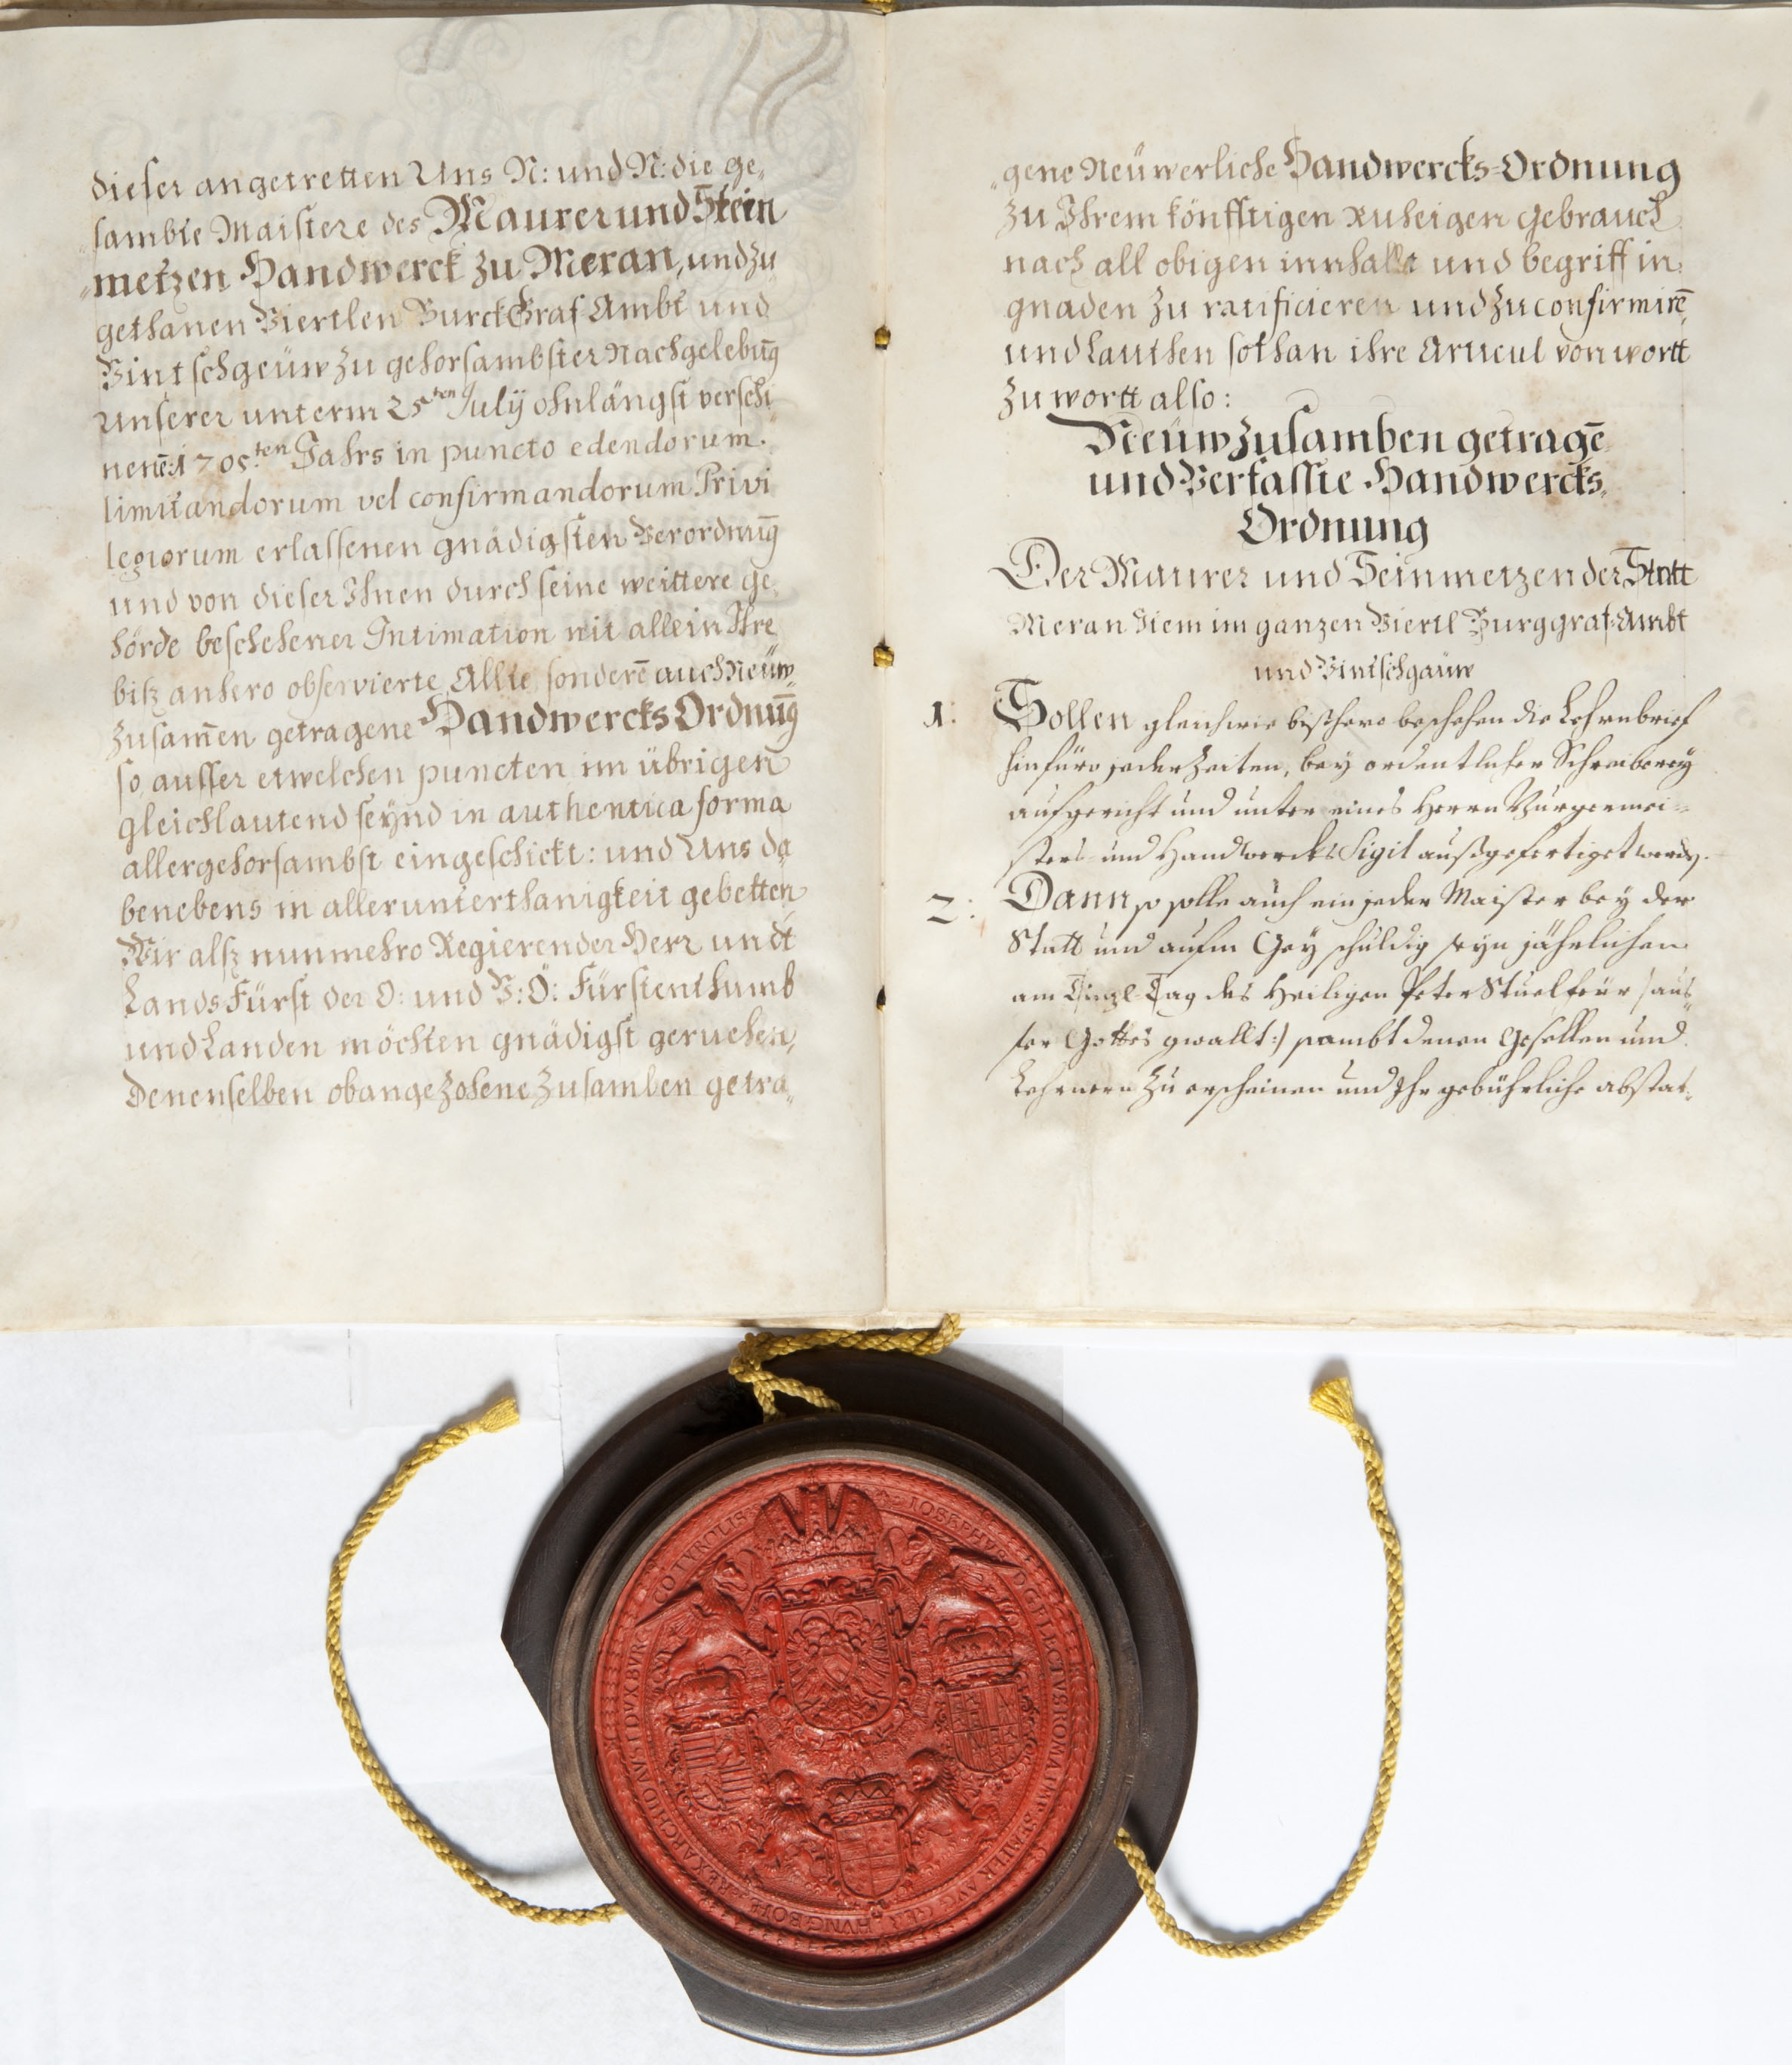 dieser angetretten Uns N: und N: die ge„
„sambte Maistere des Maurer und Stein
„metzen Handwerck zu Meran, und zu
gethanen Viertlen BurckGraf Ambt und
Vintschgeüw zu gehorsambster Nachgelebūg
Unserer unterm 25ten July ohnlängst verschi„
nenē 1705.ten Jahrs in puncto edendorum.
limitandorum vel confirmandorum Privi
legiorum erlassenen gnädigsten Verordnūg
und von dieser Ihnen durch seine weittere ge„
hörde beschehener Intimation nit allein Ihre
biß anhero observierte Allte sonderē auch Neüw„
zusam̄en getragene Handwercks Ordnūg
so ausser etwelchen puncten im übrigen
gleichlautend seynd in authentica forma
allergehorsambst eingeschickt: und Uns da
benebens in allerunterthanigkeit gebetten
Wir alß nunmehro Regierender Herr undt
Lands Fürst der O: und V: Ö: Fürstenthumb
und Landen möchten gnädigst geruehen,
Denenselben obangezohene zusamben getra„
„gene Neüwerliche Handwercks-Ordnung
zu Ihrem könfftigen ruheigen gebrauch
nach all obigen innhallt und begriff in
gnaden zu ratificieren und zu confirmirē,
und Lauthen sothan ihre Articul von wortt
zu wortt also:
Neüw zusamben getragē
und Verfasste Handwercks„
Ordnung
Der Maurer und Steinmetzen der Statt
Meran Item im ganzen Viertl Burggraf-Ambt
und Vintschgäuw
1: Sollen gleichwie bißhero beschehen die Lehrnbrief
hinfüro jederzeiten, bey ordentlicher Schreiberey
aufgericht und unter eines Herrn Burgermei=
sters und Handwercks Sigil außgefertiget werdē.
2: Dann so solle auch ein jeder Maister bey der
Statt und aufm Gey schuldig seyn jährlichen
am Tag des Heiligen Peter Stuelfeür /aus„
ser Gottes gwallt:/ sambt denen Gesellen und
Lehrnern zu erscheinen und Ihr gebührliche abstat„
IOSEPHVS D G ELECTVS ROMA IMP SEMPER AVG GER HVNG BOH REX ARCHID AVST DVX BVRG CO TYROLIS